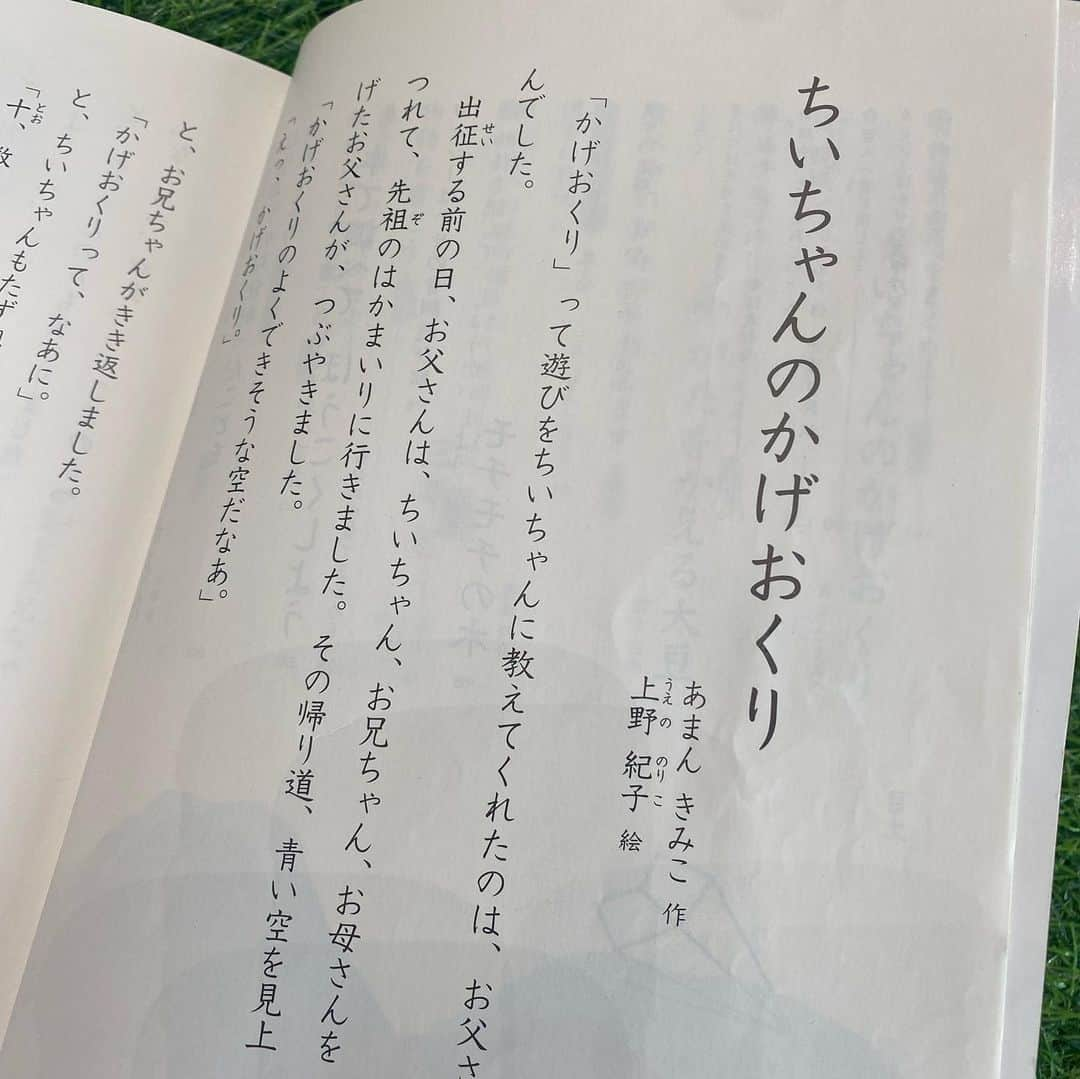 ちいちゃんのかげおくり
あまん きみこ 作
うえの のりこ
上野 紀子 絵
「かげおくり」って遊びをちいちゃんに教えてくれたのは、お父さ
んでした。
せい
出征する前の日、お父さんは、ちいちゃん、お兄ちゃん、お母さんを
ぞ
つれて、先祖のはかまいりに行きました。その帰り道、青い空を見上
げたお父さんが、つぶやきました。
「かげおくりのよくできそうな空だなあ。」
「えっ、かげおくり。」
と、お兄ちゃんがきき返しました。
「かげおくりって、なあに。」
と、ちいちゃんもたずね
とお
「十、数